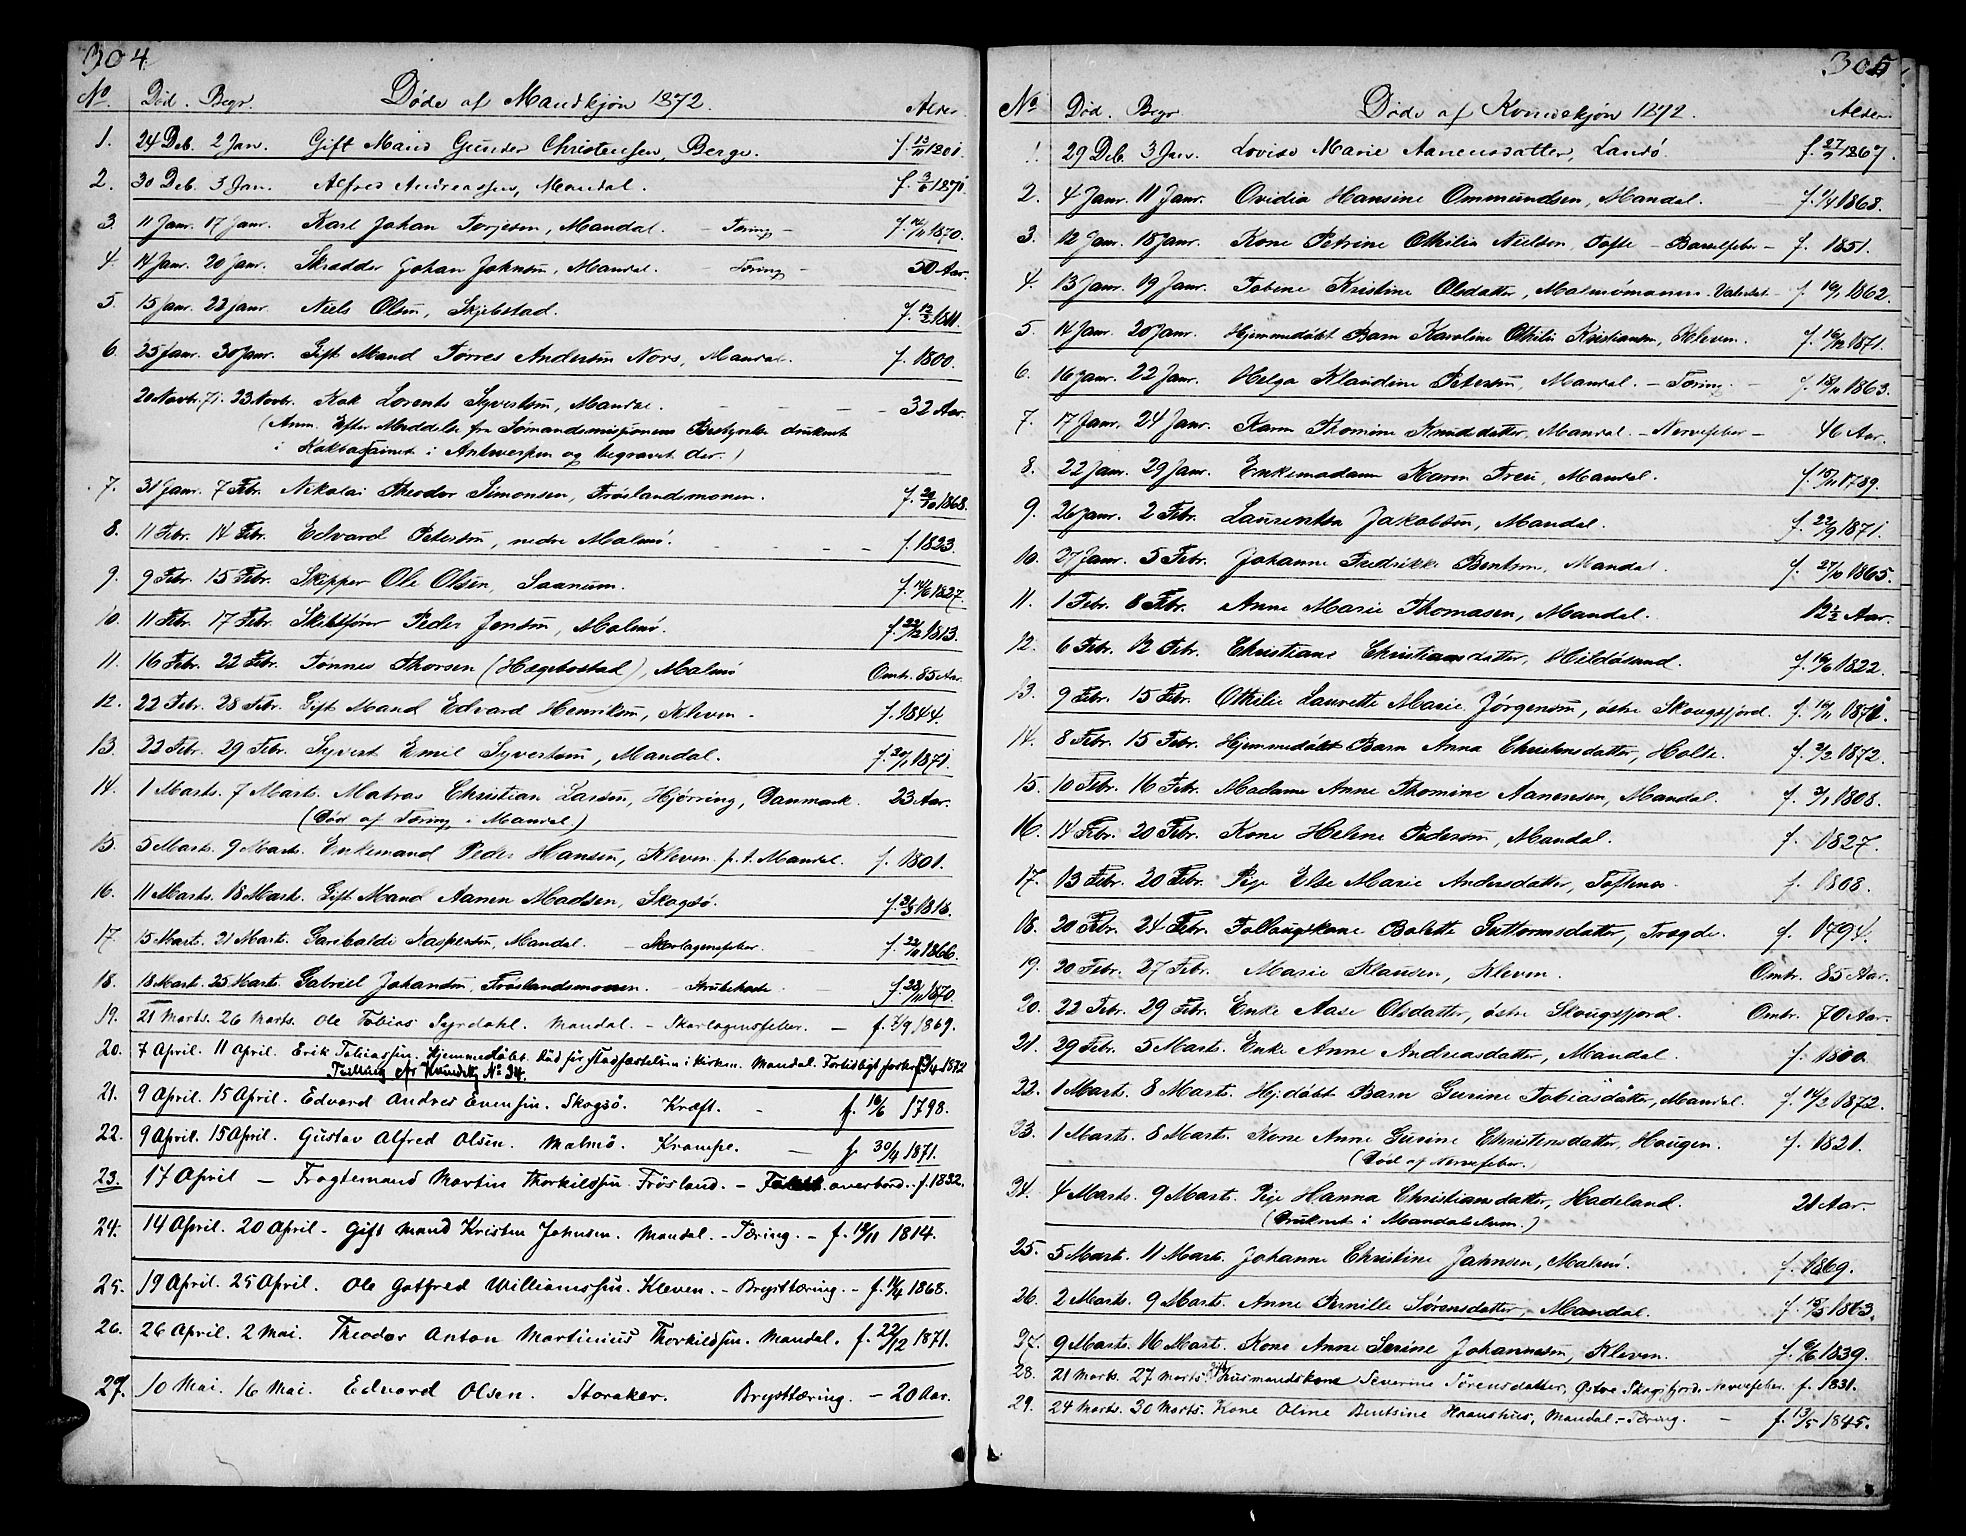 304
No. Død. Begr. Døde af Mandkjøn 1872. Alder
1. 24 Deb. 2 Jan. Gift Mand Gunder Christensen, Berge. f. 12/11 1801.
2. 30 Deb. 3 Jan. Alfred Andreassen, Mandal. f. 3/6 1871.
3. 11 Janr. 17 Janr. Karl Johan Torjesen, Mandal. - Tæring - f. 14/11 1870.
4. 14 Janr. 20 Janr. Skrædder Johan Johnsen, Mandal. - Tæring - 50 Aar.
5. 15 Janr. 22 Janr. Niels Olsen, Skjebstad. f. 12/2 1811.
6. 25 Janr. 30 Janr. Gift Mand Torres Andersen Nors, Mandal. f. 1800.
20 Novbr. 71. 23. Novbr. Kok Lorents Syvertsen, Mandal. - - - 32 Aar.
(Anm. Efter Meddelse fra Sømandsmisjonens Bestyrelse druknet
i i Antwerpen og begravet der.)
7. 31 Janr. 7 Febr. Nikolai Theodor Simonsen, Frøslandsmonen. f. 1868.
8. 11 Febr. 14 Febr. Edvard Petersen, nedre Malmø. - - - f. 1823.
9. 9 Febr. 15 Febr. Skipper Ole Olsen, Saanum. f. 14/6 1827.
10. 11 Febr. 17 Febr. Skibsfører Peder Jensen, Malmø. f. 22/12 1813.
11. 16 Febr. 22 Febr. Tønnes Thorsen (Hægebostad), Malmø Omtr. 85 Aar.
12. 22 Febr. 28 Febr. Gift Mand Edvard Henriksen, Kleven. f. 1844.
13. 22 Febr. 29 Febr. Syvert Emil Syvertsen, Mandal. f. 24/1 1871.
14. 1 Marts. 7 Marts. Matros Christian Larsen, Hjørring, Danmark. 23 Aar.
(Død af Tæring i Mandal.)
15. 5 Marts. 9 Marts. Enkemand Peder Hansen, Kleven. p. t. Mandal. f. 1801.
16. 11 Marts. 18 Marts. Gift Mand Aanen Madsen, Skogsø. f. 1818.
17. 15 Marts. 21 Marts. Garibaldi Kaspersen, Mandal. - Skarlagensfeber. f. 22/11 1866.
18. 18 Marts. 25 Marts. Gabriel Johansen, Frøslandsmonen. - Strubehoste - f. 23/11 1870.
19. 21 Marts. 26 Marts. Ole Tobias Syrdahl. Mandal. - Skarlagensfeber. - f. 7/9 1869.
20. 7 April. 11 April. Erik Tobiassen. Hjemmedøbt. Død før Stadfæstelsen i Kirken. Mandal. Fortidligt f. 1872
Tvilling cfr. Kvindekj No 34.
21. 9 April. 15 April. Edvard Andres Evensen. Skogsø. Kræft. - f. 10/6 1798.
22. 9 April. 15 April. Gustav Alfred Olsen. Malmø. Krampe. - f. 30/4 1871.
23. 17 April - Fragtemand Martin Thorkildsen. Frøsland. - Faldt overbord. f. 1832.
24. 14 April. 20 April - Gift Mand Kristen Johnsen. Mandal. - Tæring. - f. 19/11 1814.
25. 19 April. 25 April. Ole Gotfred Williamssen. Kleven. - Brysttæring. - f. 11/4 1868.
26. 26 April. 2 Mai. Theodor Anton Martinius Thorkildsen. Mandal. f. 22/12 1871.
27. 10 Mai. 16 Mai. Edvard Olsen. Storaker. Brysttæring. - 20 Aar.
305
No Død. Begr Døde af Kvindekjøn 1872. Alder
1. 29 Deb. 3 Jan. Lovise Marie Aanensdatter, Landø. f. 27/9 1867.
2. 4 Janr. 11 Janr. Ovidia Hansine Ommundsen, Mandal. f. 1/4 1868.
3. 12 Janr. 18 Janr. Kone Petrine Othilia Nielsen, Tofte - Barselfeber - f. 1851.
4. 13 Janr. 19 Janr. Tobine Kristine Olsdatter, Malmømonen. f. 19/1 1862.
5. 14 Janr. 20 Janr. Hjemmedøbt Barn Karoline Othilie Kristiansen, Kleven. f. 16/12 1871.
6. 16 Janr. 22 Janr. Helga Klaudine Petersen, Mandal. - Tæring. - f. 18/11 1863.
7. 17 Janr. 24 Janr. Karen Thomine Knuddatter, Mandal. - Nervefeber - 46 Aar.
8. 22 Janr. 29 Janr. Enkemadam Karen Freu, Mandal. f. 15/11 1789.
9. 26 Janr. 2 Febr. Laurentsa Jakobsen, Mandal. f. 22/9 1871.
10. 27 Janr. 5 Febr. Johanne Fredrikke Bentsen, Mandal. f. 27/10 1865.
11. 1 Febr. 8 Febr. Anne Marie Thomasen, Mandal. 12 1/2 Aar.
12. 6 Febr. 12 Febr. Christiane Christiansdatter, Hildøsund. f. 16/6 1822.
13. 9 Febr. 15 Febr. Othilie Laurette Marie Jørgensen, østre Skougsfjord. f. 14/11 1870.
14. 8 Febr. 15 Febr. Hjemmedøbt Barn Anna Christensdatter, Holte. f. 3/2 1872.
15. 10 Febr. 16 Febr. Madame Anne Thomine Aanensen, Mandal. f. 3/1 1808.
16. 14 Febr. 20 Febr. Kone Helene Pedersen, Mandal. f. 1827.
17. 13 Febr. 20 Febr. Pige Else Marie Andersdatter, Toftenes. f. 1808.
18. 20 Febr. 24 Febr. Follaugskone Bolette Guttormsdatter, Tregde. f. 1794.
19. 20 Febr. 27 Febr. Marie Klausen, Kleven. Omtr. 85 Aar.
20. 22 Febr. 29 Febr. Enke Aase Olsdatter, østre Skougsfjord. Omtr. 70 Aar.
21. 29 Febr. 5 Marts. Enke Anne Andreasdatter, Mandal. f. 1800.
22. 1 Marts. 8 Marts. Hj.døbt Barn Gurine Tobiasdatter, Mandal. f. 14/2 1872.
23. 1 Marts. 8 Marts. Kone Anne Gurine Christensdatter, Haugen. f. 1821.
(Død af Nervefeber.)
24. 4 Marts. 9 Marts. Pige Hanna Christiansdatter, Hadeland. 21 Aar.
(Druknet i Mandalselven.)
25. 5 Marts. 11 Marts. Johanne Christine Jahnsen, Malmø. f. 1869.
26. 2 Marts. 9 Marts. Anne Pernille Sørensdatter, Mandal. f. 1803.
27. 9 Marts. 16 Marts. Kone Anne Serine Johannesen, Kleven. f. 6/6 1839.
28. 21 Marts. 27 Marts. Husmandskone Severine Sørensdatter, Østre Skogsfjord. Nervefeber. f. 1831.
29. 24 Marts. 30 Marts. Kone Oline Bentsine Haanshus, Mandal. - Tæring. - f. 13/5 1845.